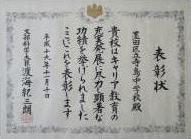 表彰状
墨田区立寺島中学校殿
貴校はキャリア教育の
充実発展に尽力し顕著な
功績を挙げられました
ここにこれを表彰します
平成十九年十一月十日
文部科学大臣 渡海紀三朗